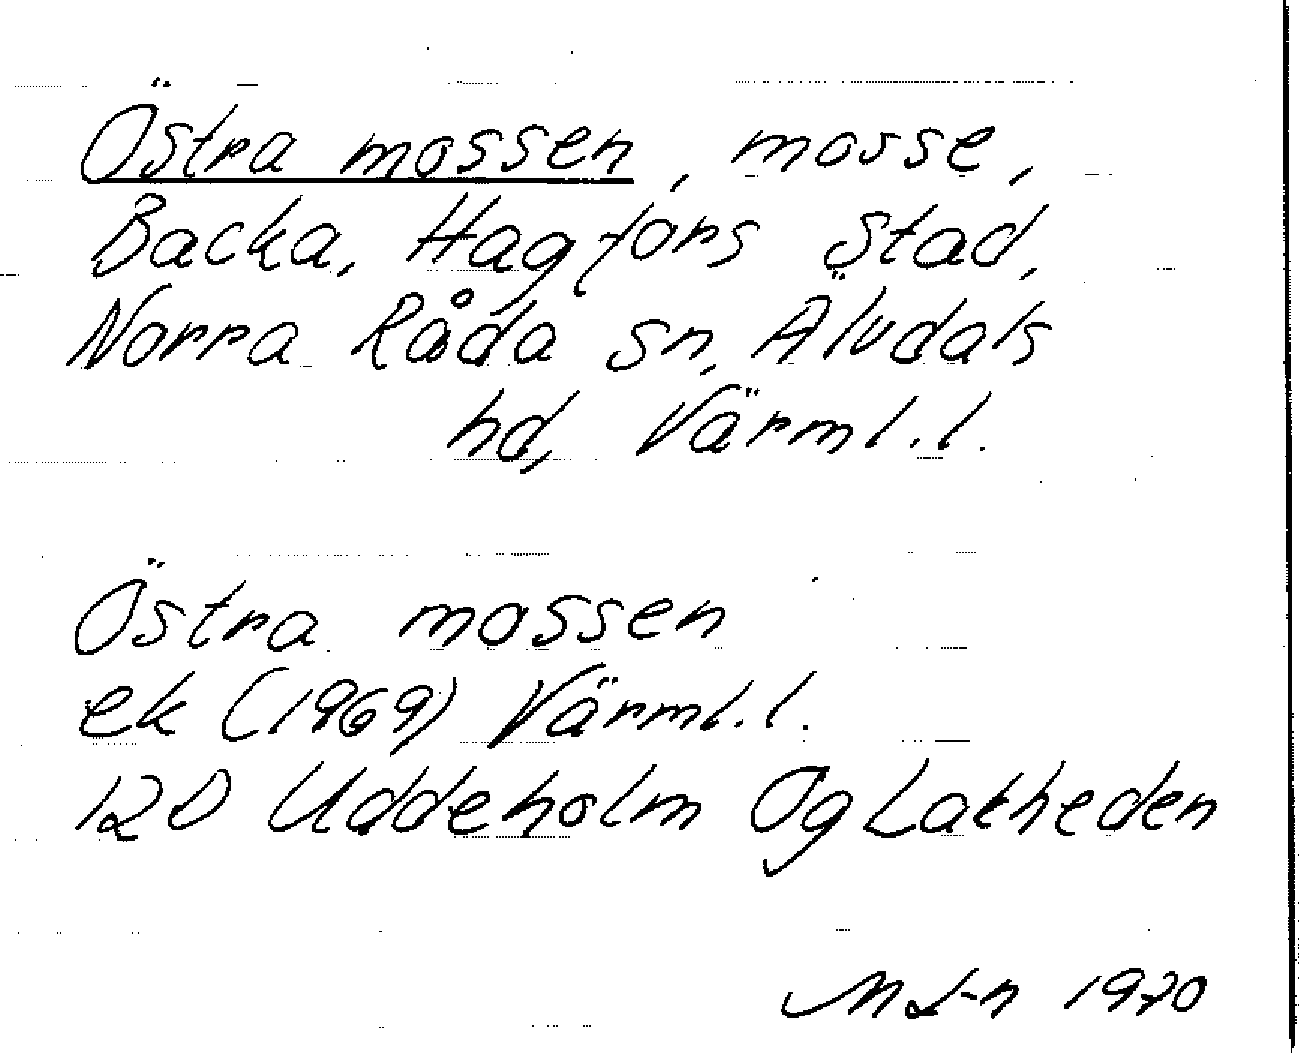 Östra mossen, mosse,
Backa, Hagfors stad,
Norra Råda sn, Älvdals
hd, Värml.l.
Östra mossen
ek (1969) Värml.l.
12D Uddeholm Og Latheden
ML-n 1970